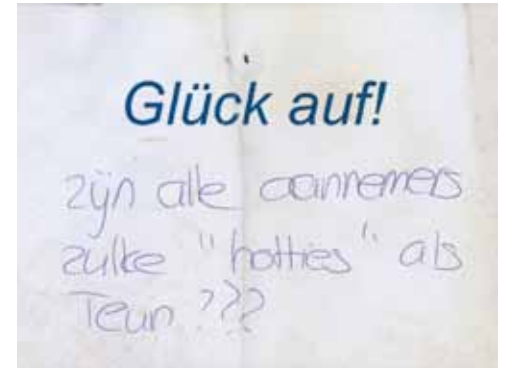 Glück auf!
zijn alle aannemers
zulke "hotties" als
Teun ???